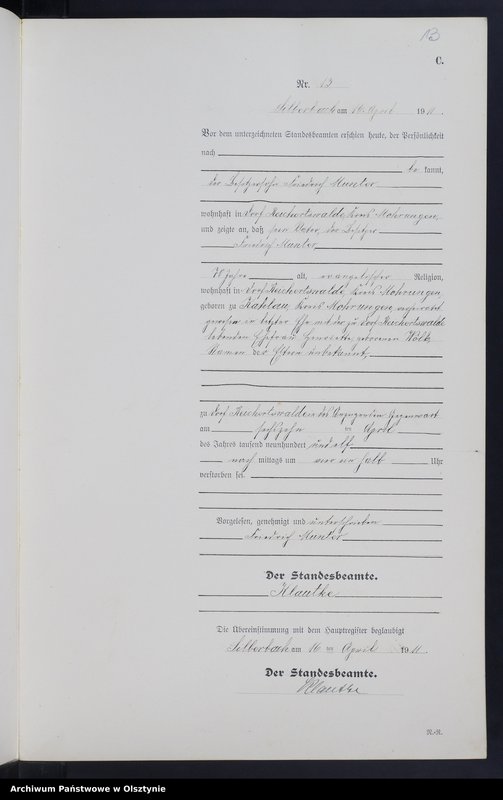 13
C.
Nr. 13
Silberbach am 16. April 1911.
Vor dem unterzeichneten Standesbeamten erschien heute, der Persönlichkeit
nach
be kannt,
der Besitzersohn Friedrich Munter
wohnhaft in Dorf Reichertswalde, Kreis Mohrungen,
und zeigte an, daß sein Vater, der Besitzer
Friedrich Munter
70 Jahre alt, evangelischer Religion,
wohnhaft in Dorf Reichertswalde, Kreis Mohrungen
geboren zu Kahlau, Kreis Mohrungen, verheiratet
gewesen in letzter Ehe mit der zu Dorf Reichertswalde
lebenden Ehefrau Henriette geborenen
Namen der Eltern unbekannt,
zu Dorf Reichertswalde in des Anzeigenden Gegenwart
am sechszehn ten April
des Jahres tausend neunhundert und elf
nach mittags um vier ein halb Uhr
verstorben sei.
Vorgelesen, genehmigt und unterschrieben
Friedrich Munter
Der Standesbeamte.
Klautke
Die Übereinstimmung mit dem Hauptregister beglaubigt
Silberbach am 16 ten April 1911.
Der Standesbeamte.
Klautke
N.-R.
Archiwum Państwowe w Olsztynie